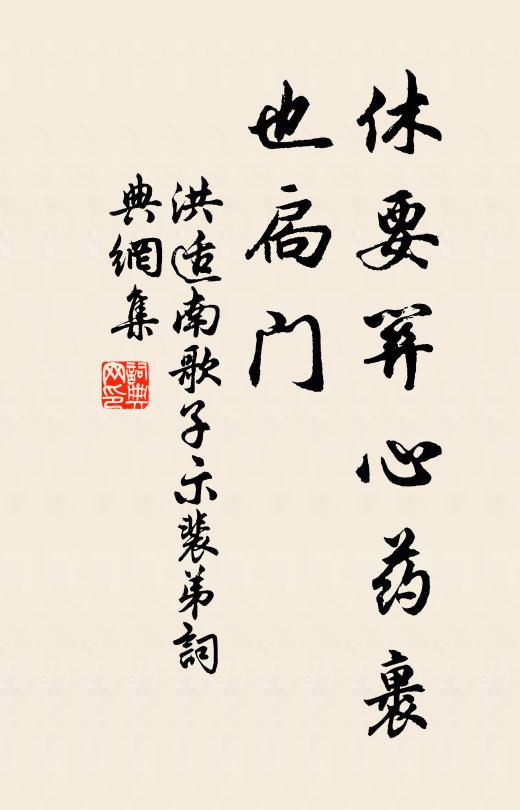 休要关心药裹
也扃门
洪适南歌子示裴弟詞
典網集
詞典
网印